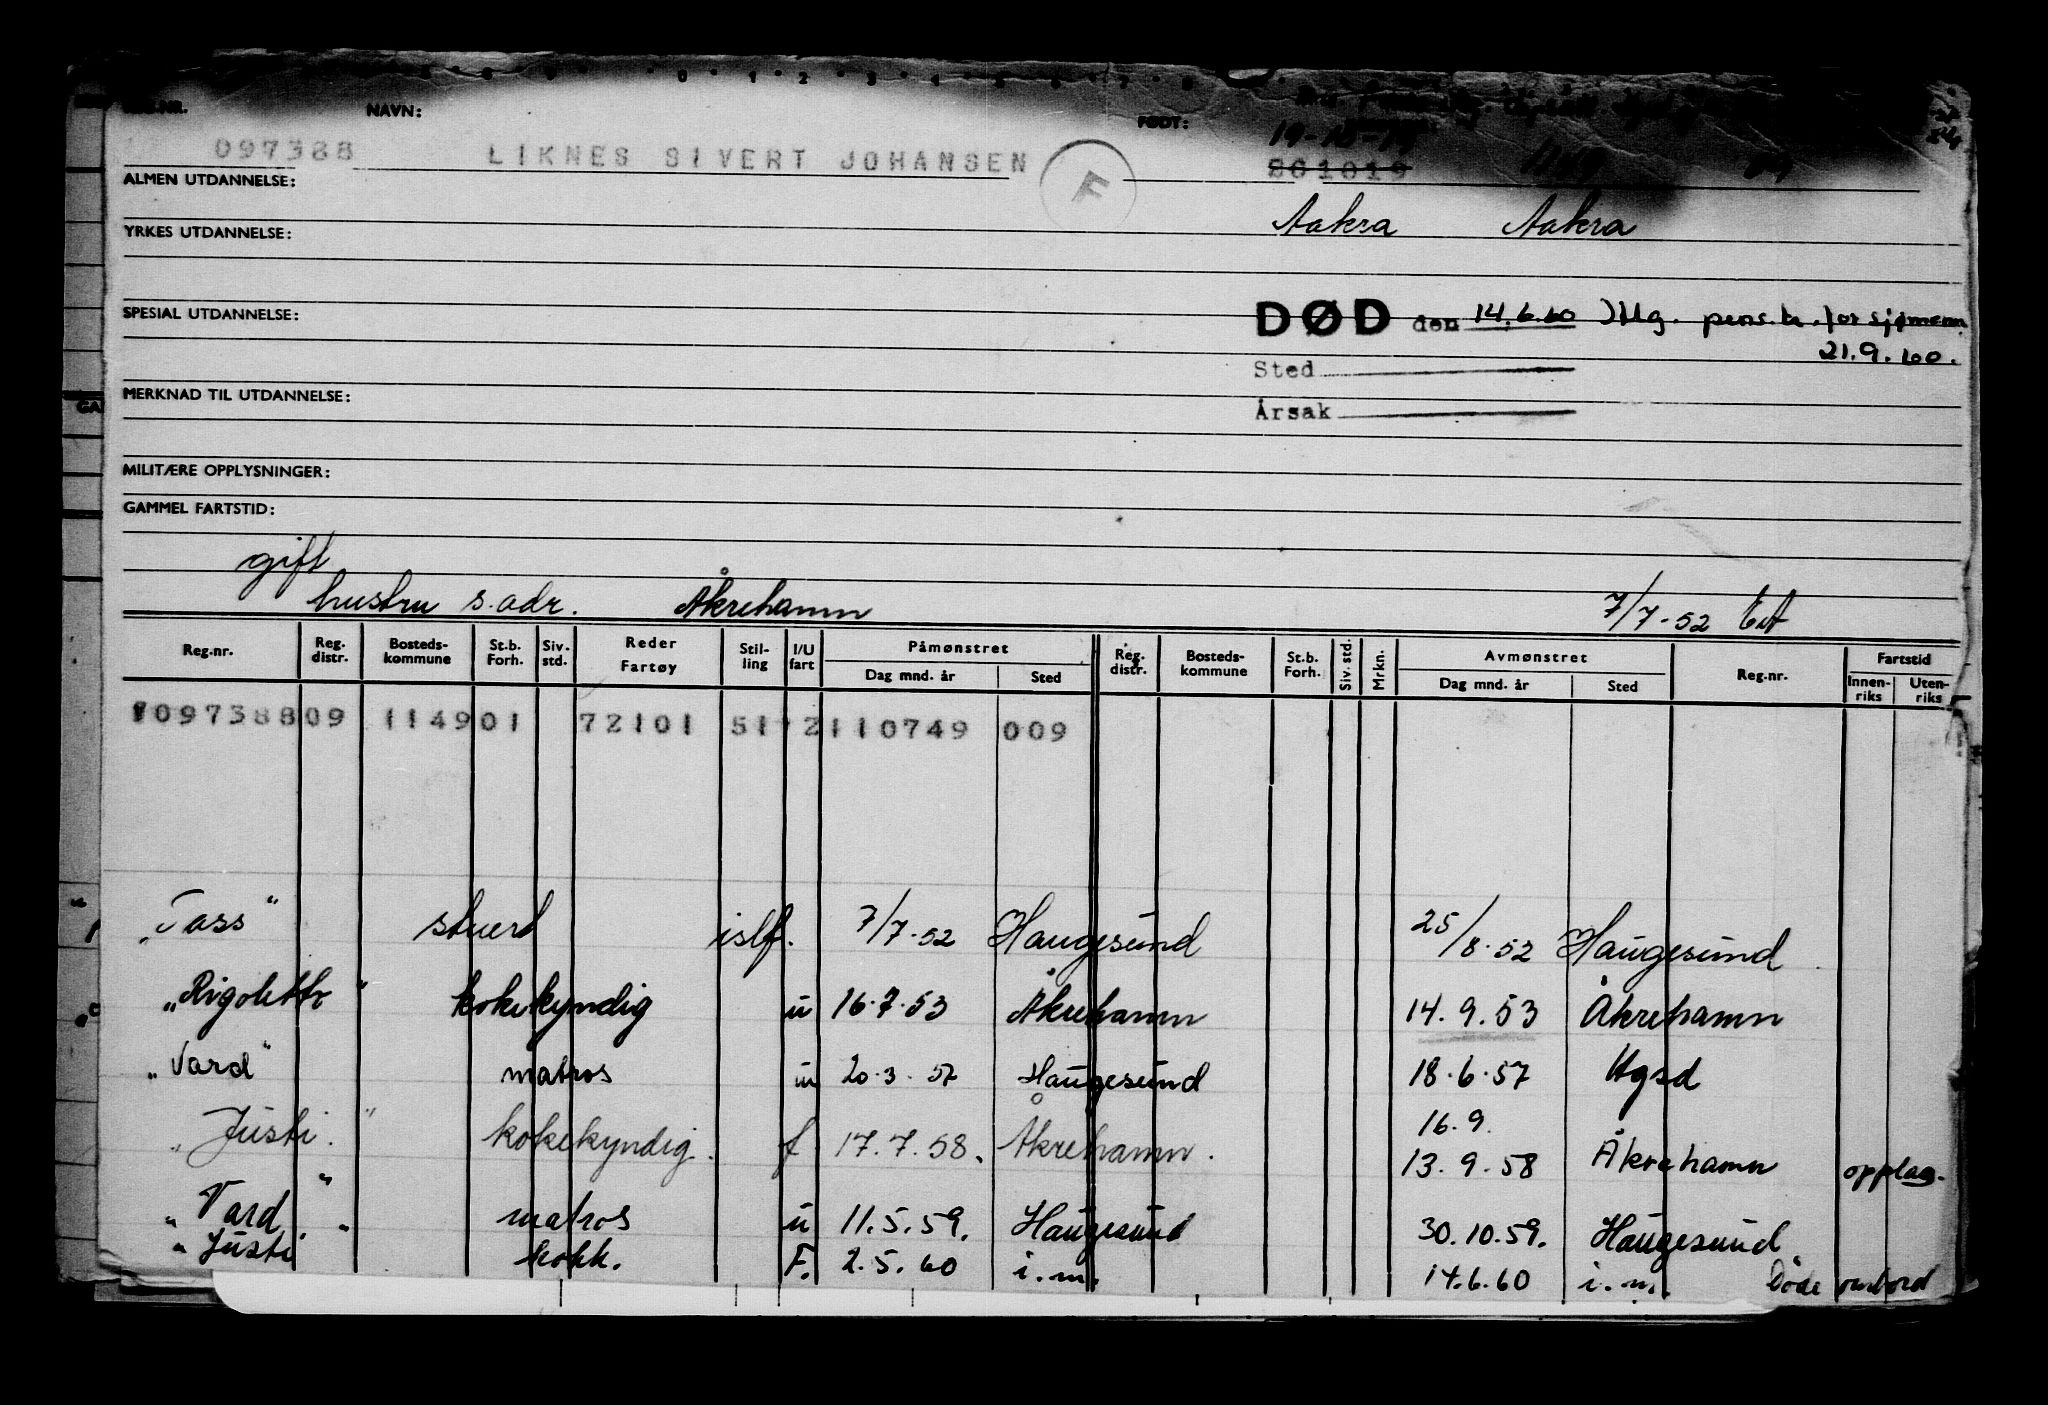 NAVN: FØDT:
19-10-19
097388 LIKNES SIVERT JOHANSEN F 261019
ALMEN UTDANNELSE:
Aakra Aakra
YRKES UTDANNELSE:
SPESIAL UTDANNELSE: DØD den 14.6.60 Mg. pens.tr. for sjømenn
21.9.60.
Sted
MERKNAD TIL UTDANNELSE: Årsak
MILITÆRE OPPLYSNINGER:
GAMMEL FARTSTID:
gift
hustru s.adr. Åkrehamn 7/7-52
Reg.nr. Reg. distr. Bosteds- kommune St.b. Forh. Siv. std. Reder Fartøy Stil- ling I/U fart Påmønstret Dag mnd. år Sted Reg. distr. Bosteds- kommune St.b. Forh. Siv. std. Mrkn. Avmønstret Dag mnd. år Sted Reg.nr. Fartstid Innen- riks Uten- riks
09738809 114901 72101 51 2110749 009
"Tass" stuert islf. 7/7-52 Haugesund 25/8-52 Haugesund
"Rigoletto" kokekyndig u 16.7.53 Åkrehamn 14.9.53 Åkrehamn
"Vard" matros u 20.3.57 Haugesund 18.6.57 Hgsd
16.9.
"Justi." kokekyndig. f 17.7.58. Åkrehamn. 13.9.58 Åkrehamn opplag.
"Vard" matros u 11.5.59. Haugesund 30.10.59. Haugesund.
"Justi" kokk. F. 2.5.60 i.m. 14.6.60 i.m. Døde ombord